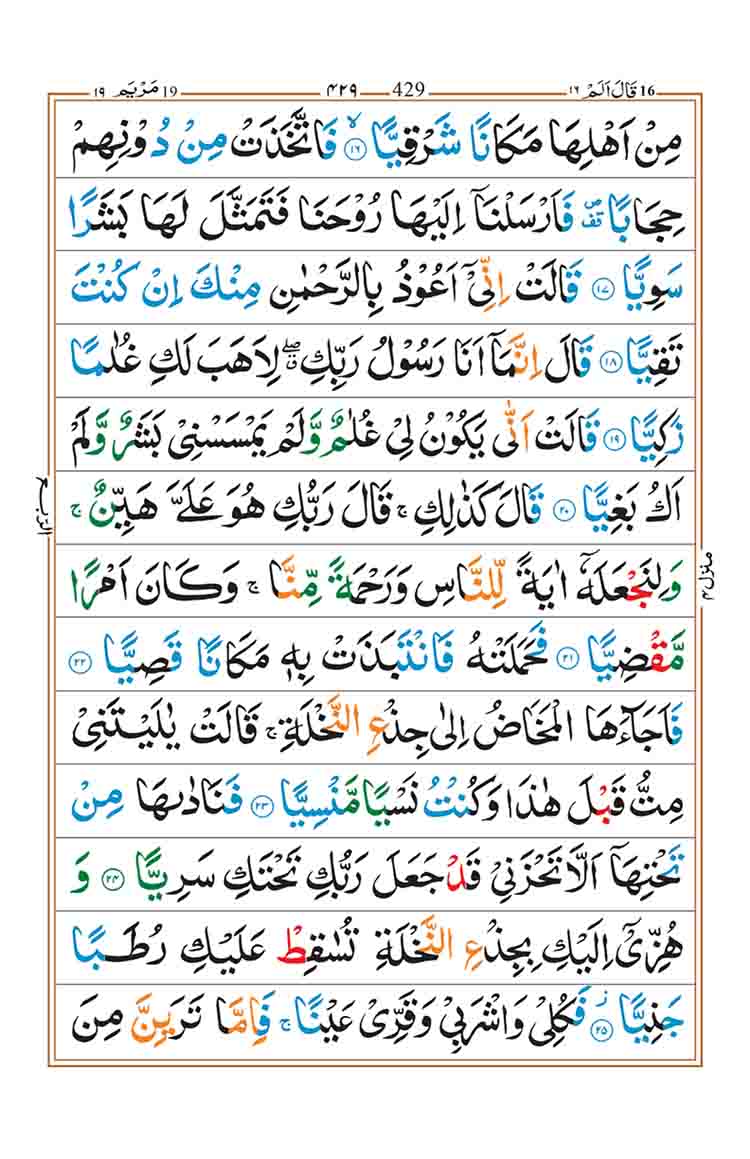 19 مَرْيَم ١٩ ٤٢٩ 429 16 قَالَ اَلَمْ ١٦
مِنْ اَهْلِهَا مَكَانًا شَرْقِيًّا ۙ‏﴿۱۶﴾ فَاتَّخَذَتْ مِنْ دُوْنِهِمْ
حِجَابًا ۪۟ فَاَرْسَلْنَاۤ اِلَيْهَا رُوْحَنَا فَتَمَثَّلَ لَهَا بَشَرًا
سَوِيًّا ﴿۱۷﴾ قَالَتْ اِنِّىْۤ اَعُوْذُ بِالرَّحْمٰنِ مِنْكَ اِنْ كُنْتَ
تَقِيًّا ﴿۱۸﴾ قَالَ اِنَّمَاۤ اَنَا رَسُوْلُ رَبِّكِ ۖۗ لِاَهَبَ لَكِ غُلٰمًا
زَكِيًّا ﴿۱۹﴾ قَالَتْ اَنّٰى يَكُوْنُ لِىْ غُلٰمٌ وَّلَمْ يَمْسَسْنِىْ بَشَرٌ وَّلَمْ
اَكُ بَغِيًّا ﴿۲۰﴾ قَالَ كَذٰلِكِ ۚ قَالَ رَبُّكِ هُوَ عَلَىَّ هَيِّنٌ ۚ
وَلِنَجْعَلَهٗۤ اٰيَةً لِّلنَّاسِ وَرَحْمَةً مِّنَّا ۚ وَكَانَ اَمْرًا
مَّقْضِيًّا ﴿۲۱﴾ فَحَمَلَتْهُ فَانْتَبَذَتْ بِهٖ مَكَانًا قَصِيًّا ﴿۲۲﴾
فَاَجَآءَهَا الْمَخَاضُ اِلٰى جِذْعِ النَّخْلَةِ ۚ قَالَتْ يٰلَيْتَنِىْ
مِتُّ قَبْلَ هٰذَا وَكُنْتُ نَسْيًا مَّنْسِيًّا ﴿۲۳﴾ فَنَادٰىهَا مِنْ
تَحْتِهَاۤ اَلَّا تَحْزَنِىْ قَدْ جَعَلَ رَبُّكِ تَحْتَكِ سَرِيًّا ﴿۲۴﴾ وَ
هُزِّىْۤ اِلَيْكِ بِجِذْعِ النَّخْلَةِ تُسٰقِطْ عَلَيْكِ رُطَبًا
جَنِيًّا ز ﴿۲۵﴾ فَكُلِىْ وَاشْرَبِىْ وَقَرِّىْ عَيْنًا ۚ فَاِمَّا تَرَيِنَّ مِنَ
الرّبع
منزل ۴